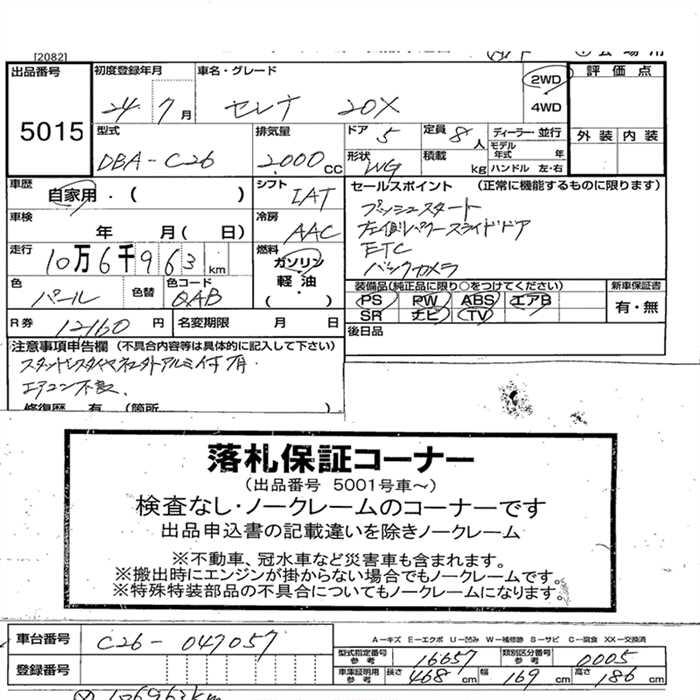 [2082]
出品番号 5015
初度登録年月 24 7月
車名・グレード セレナ 20X
2WD
4WD
評価点
外装 内装
型式 DBA-C26
排気量 2.000 CC
ドア 5
形状 WG
定員 8人
積載 kg
ディーラー・並行
モデル年式 年
ハンドル 左・右
車歴 自家用・( )
シフト IAT
車検 年 月(日)
冷房 AAC
走行 10万6千963km
燃料 ガソリン・軽油・( )
色 パール 色替
色コード QAB
R券 12160 円
名変期限 月 日
セールスポイント (正常に機能するものに限ります)
プッシュスタート
左側パワースライドドア
ETC
バックカメラ
装備品(純正品に限り○をつけてください)
PS PW ABS エアB
SR ナビ TV
新車保証書
有・無
後日品
注意事項申告欄 (不具合内容等は具体的に記入して下さい)
エアコン不良、
修復歴 有 (箇所 )
落札保証コーナー
(出品番号 5001号車～)
検査なし・ノークレームのコーナーです
出品申込書の記載違いを除きノークレーム
※不動車、冠水車など災害車も含まれます。
※搬出時にエンジンが掛からない場合でもノークレームです。
※特殊特装部品の不具合についてもノークレームになります。
車台番号 C26-047057
登録番号
A-キズ E-エクボ U-凹み W-補修跡 S-サビ C-腐食 XX-交換済
型式指定番号 参考 16657
類別区分番号 参考 0005
車庫証明用 参考 長さ 468cm 幅 169cm 高さ 186cm
106963km